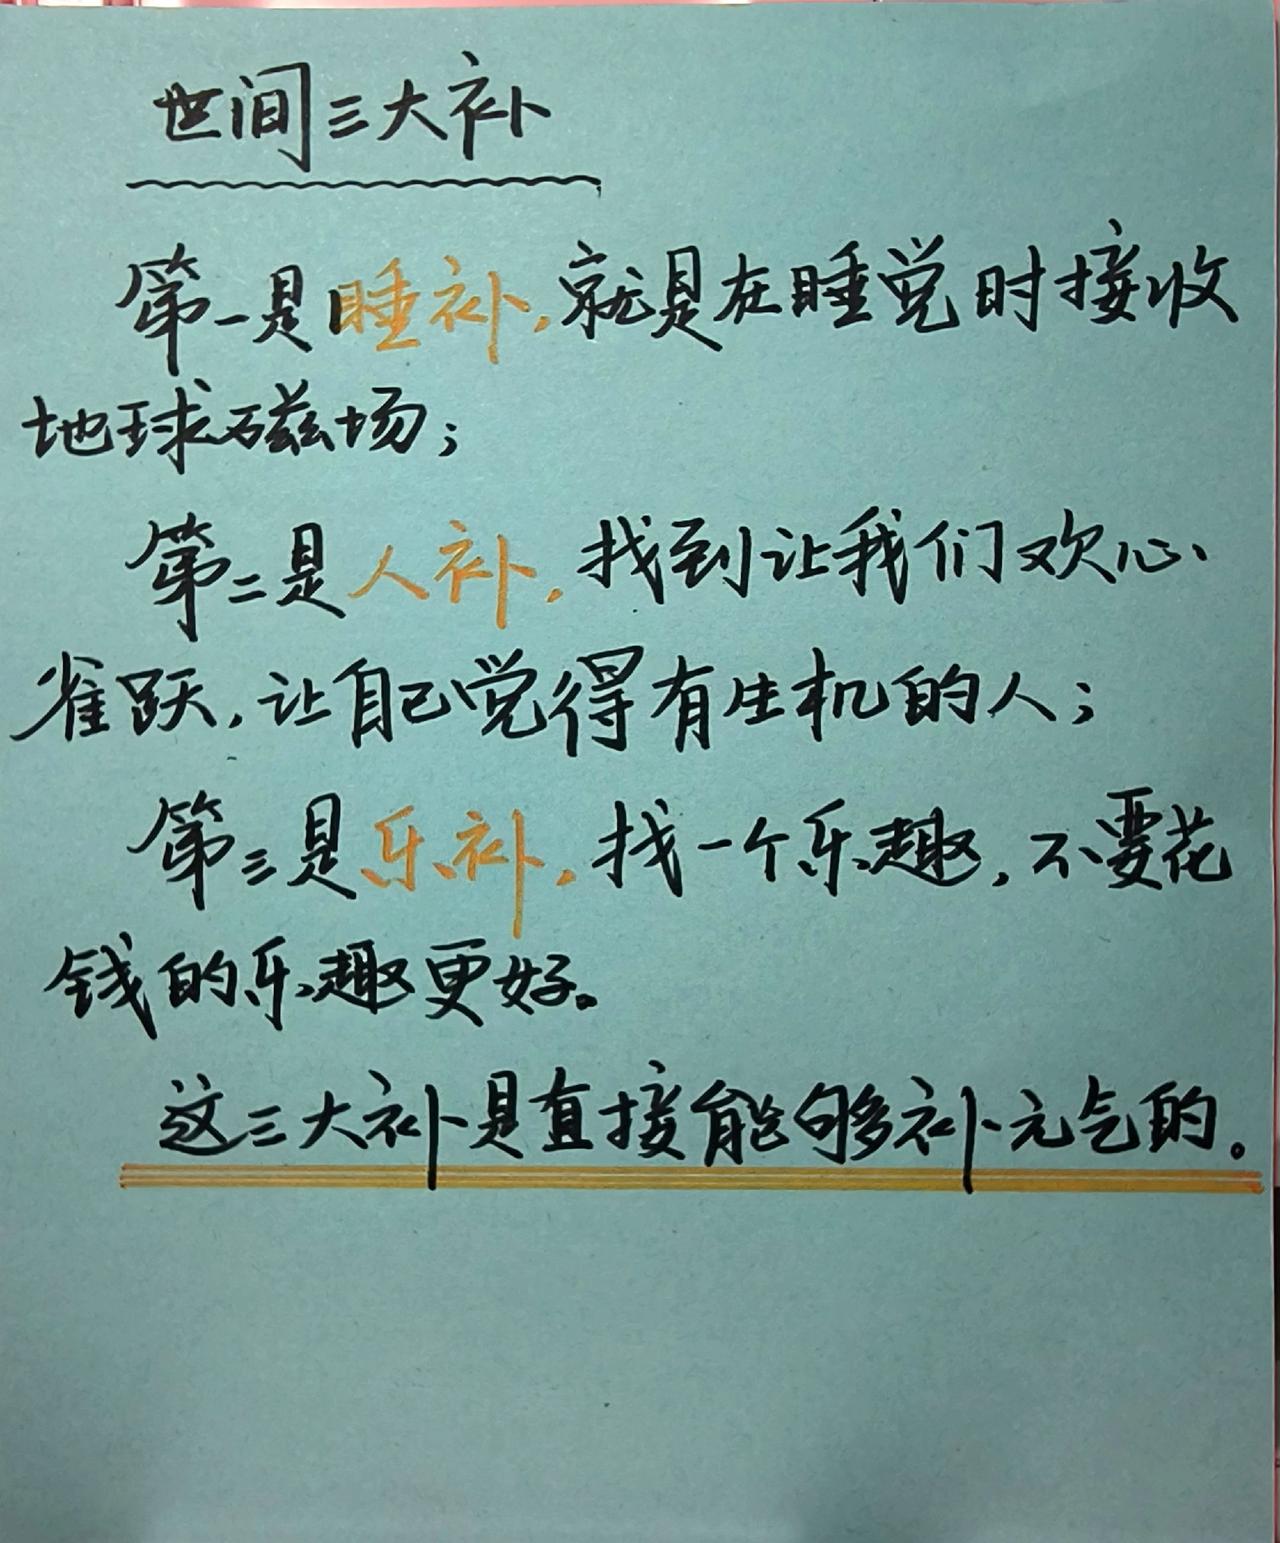 世间三大补
第一是睡补,就是在睡觉时接收
地球磁场;
第二是人补,找到让我们欢心、
雀跃,让自己觉得有生机的人;
第三是乐补,找一个乐趣,不要花
钱的乐趣更好。
这三大补是直接能够补元气的。